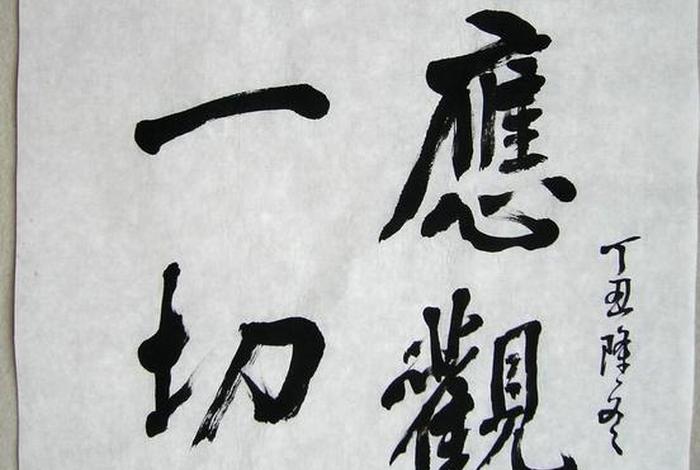 丁丑隆冬
應觀
一切